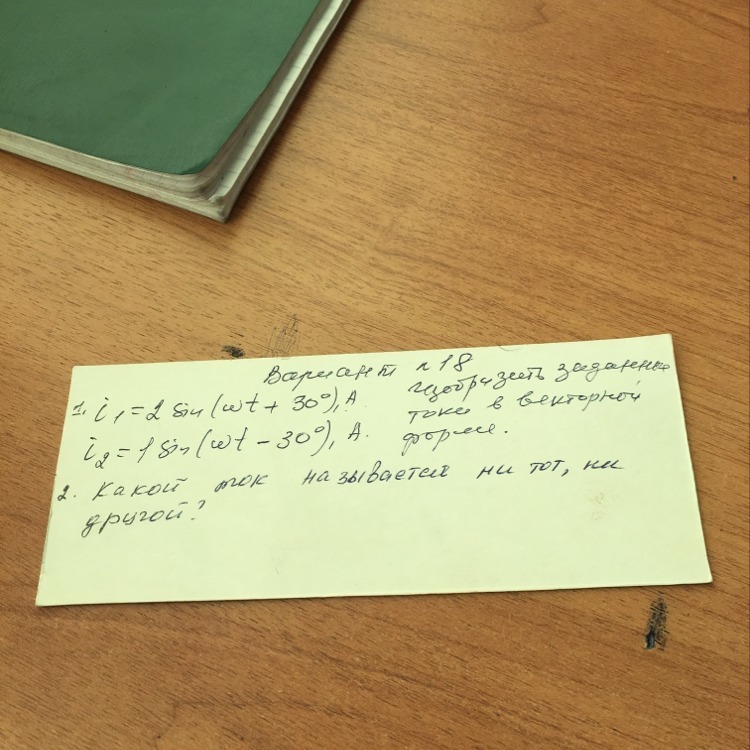 Вариант №18
1. i₁ = 2 sin(ωt + 30°), А. изобразить заданные
токи в векторной
i₂ = 1 sin(ωt − 30°), А. форме.
2. Какой ток называется ни тот, ни
другой?